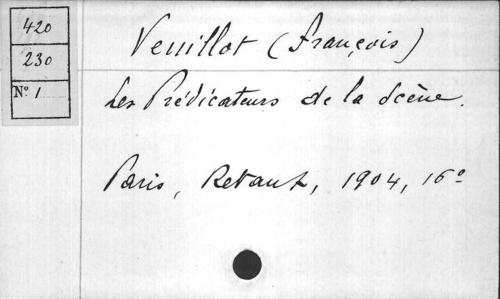 420
230
N° 1
Veuillot (François)
Les Prédicateurs de la Scène.
Paris, Retaux, 1904, 16°